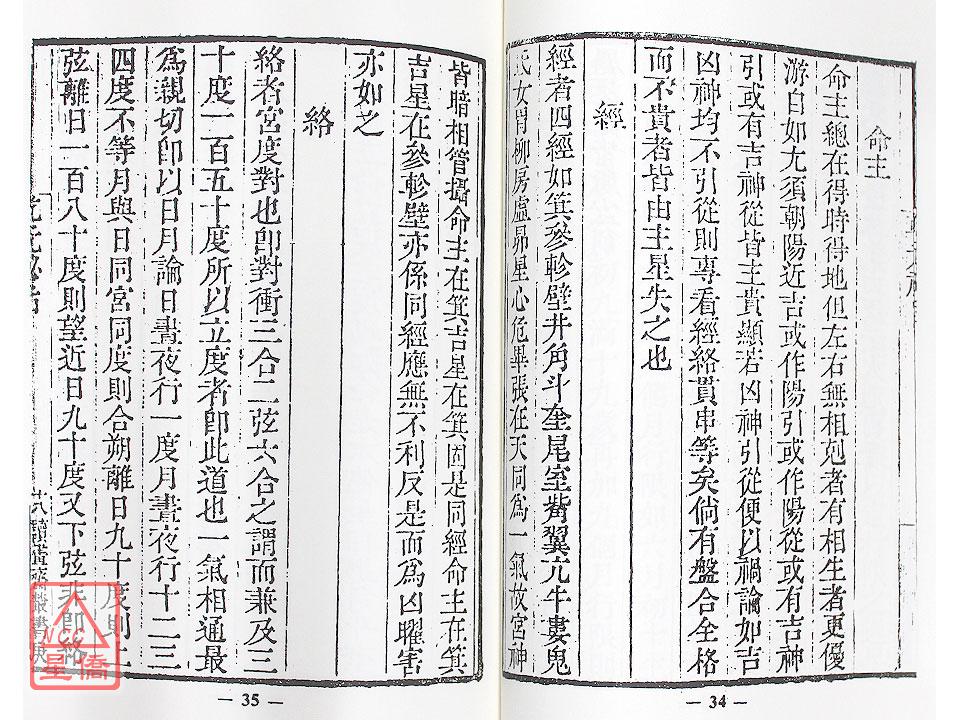 命主
命主總在得時得地但左右無相剋者有相生者更優
游白如尤須朝陽近吉或作陽引或作陽從或有吉神
引或有吉神從皆主貴顯若凶神引從便以禍論如吉
凶神均不引從則專看經絡貫串等矣倘有盤合全格
而不貴者皆由主星失之也
經
經者四經如箕參軫壁井角斗奎尾室觜翼亢牛婁鬼
氐女胃柳房虛昴星心危畢張在天同為一氣故宮神
— 34 —
皆暗相管攝命主在箕吉星在箕固是同經命主在箕
吉星在參軫壁亦係同經應無不利反是而為凶曜害
亦如之
絡
絡者宮度對也卽對衝三合二弦六合之謂而兼及三
十度一百五十度所以立度者卽此道也一氣相通最
為親切卽以日月論日晝夜行一度月晝夜行十二三
四度不等月與日同宮同度則合朔離日九十度則上
弦離日一百八十度則望近日九十度又下弦非卽絡
— 35 —
NCC
星僑